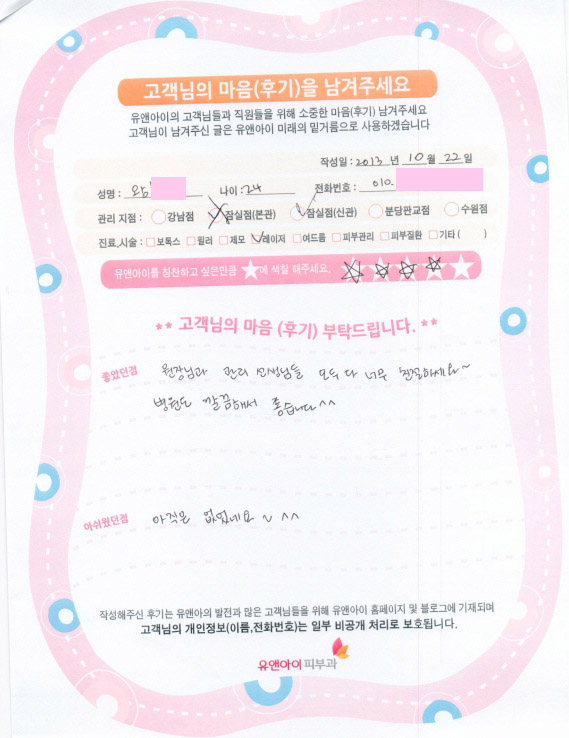 고객님의 마음(후기)을 남겨주세요
유앤아이의 고객님들과 직원들을 위해 소중한 마음(후기) 남겨주세요
고객님이 남겨주신 글은 유앤아이 미래의 밑거름으로 사용하겠습니다
작성일 : 2013 년 10 월 22 일
성명 : 나이 : 24 전화번호 : 010.
관리 지점 : 강남점 잠실점(본관) 잠실점(신관) 분당판교점 수원점
진료,시술 : 보톡스 필러 제모 레이저 여드름 피부관리 피부질환 기타 ( )
유앤아이를 칭찬하고 싶은만큼 ★에 색칠 해주세요.
** 고객님의 마음 (후기) 부탁드립니다. **
좋았던점 원장님과 관리 선생님들 모두 다 너무 친절하세요~
병원도 깔끔해서 좋습니다^^
아쉬웠던점 아직은 없었네요 ~ ^^
작성해주신 후기는 유앤아의 발전과 많은 고객님들을 위해 유앤아이 홈페이지 및 블로그에 기재되며
고객님의 개인정보(이름,전화번호)는 일부 비공개 처리로 보호됩니다.
유앤아이피부과